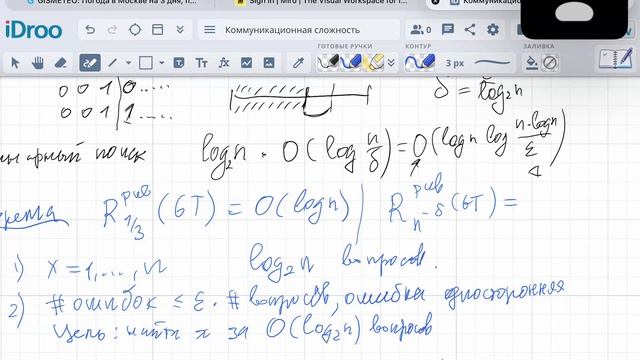 GISMETEO: Погода в Москве на 3 дня, п...
Sign in | Miro | The Visual Workspace for I...
Коммуникационная
iDroo
Коммуникационная сложность
ГОТОВЫЕ РУЧКИ
КОНТУР
ЗАЛИВКА
3 px
0 0 1 0 .....
0 0 1 1 .....
δ = log₂n
поиск log₂n · O(log n/δ) = O(log n log n·log n/ε)
R_{1/3}^{pub}(GT) = O(log n) | R_{n^{-δ}}^{pub}(GT) =
1) x = 1, ..., n log₂n вопросов.
2) # ошибок ≤ ε · # вопросов, ошибка односторонняя
Цель: найти x за O(log₂n) вопросов